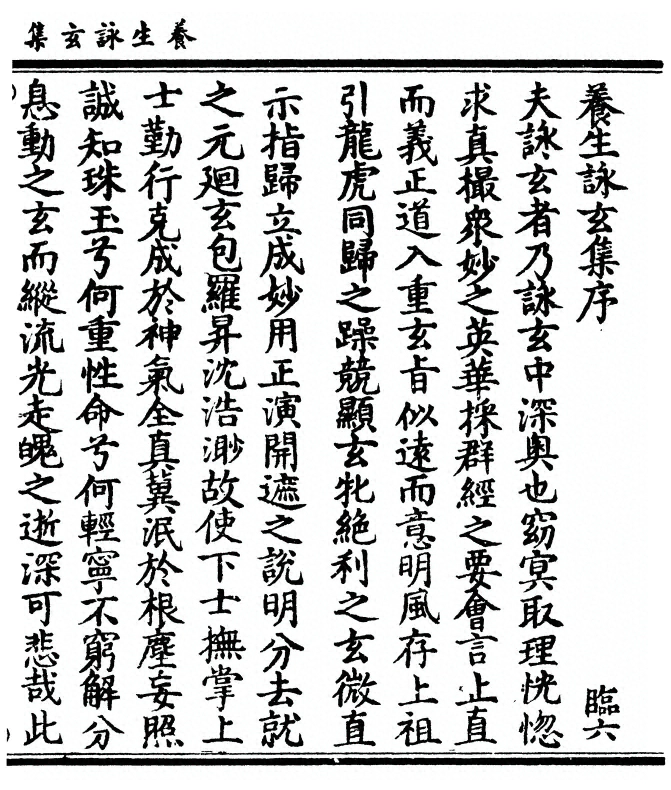 養生詠玄集
養生詠玄集序 臨六
夫詠玄者乃詠玄中深奧也窈冥取理恍惚
求真撮衆妙之英華採群經之要會言止直
而義正道入重玄旨似遠而意明風存上祖
引龍虎同歸之躁競顯玄牝絶利之玄微直
示指歸立成妙用正演開遮之說明分去就
之元廻玄包羅昇沈浩渺故使下士撫掌上
士勤行克成於神氣全真冀泯於根塵妄照
誠知珠玉兮何重性命兮何輕寧不窮解分
息動之玄而縱流光走魄之逝深可悲哉此